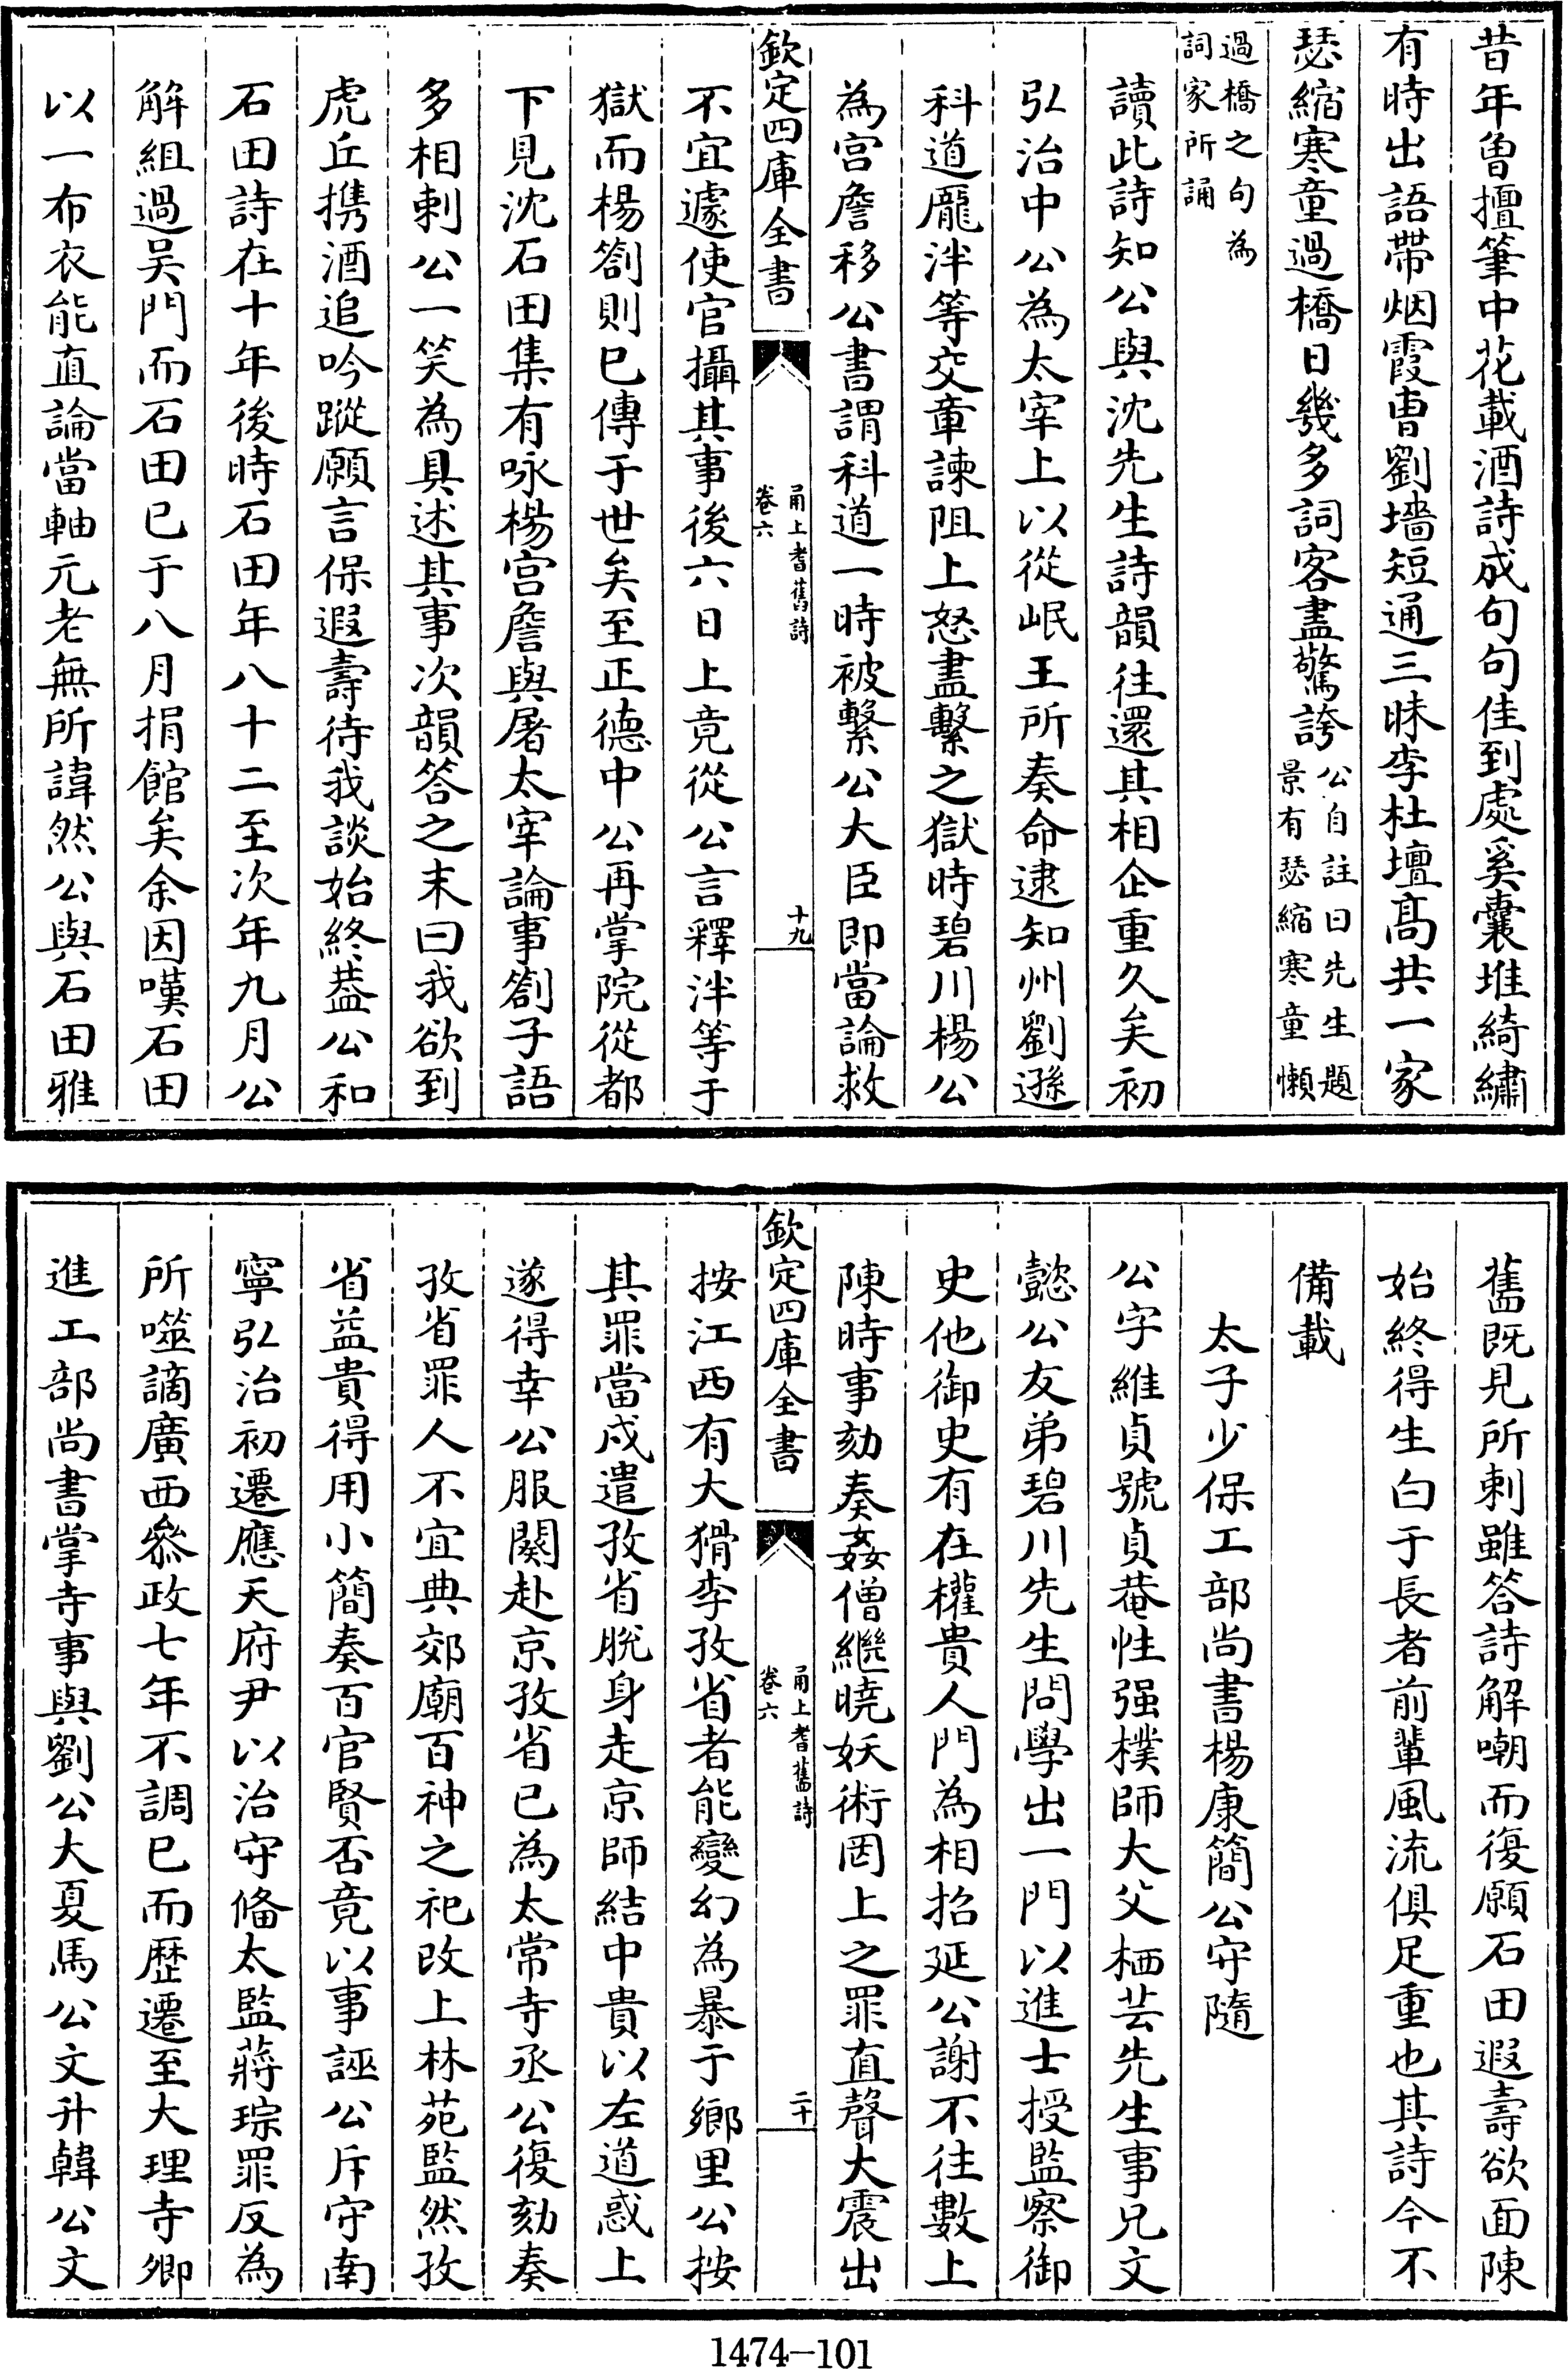 昔年魯擅筆中花載酒詩成句句佳到處奚囊堆綺繡
有時出語帶烟霞曹劉墻短通三昧李杜壇髙共一家
瑟縮寒童過橋日幾多詞客盡驚誇公自註曰先生題景有瑟縮寒童懶
過橋之句為詞家所誦
讀此詩知公與沈先生詩韻往還其相企重久矣初
弘治中公為太宰上以從岷王所奏命逮知州劉遜
科道龎泮等交章諫阻上怒盡繫之獄時碧川楊公
為宫詹移公書謂科道一時被繫公大臣即當論救
欽定四庫全書
甬上耆舊詩
卷六
十九
不宜遽使官攝其事後六日上竟從公言釋泮等于
獄而楊劄則已傳于世矣至正德中公再掌院從都
下見沈石田集有咏楊宫詹與屠太宰論事劄子語
多相刺公一笑為具述其事次韻答之末曰我欲到
虎丘携酒追吟蹤願言保遐壽待我談始終葢公和
石田詩在十年後時石田年八十二至次年九月公
解組過吴門而石田已于八月捐館矣余因嘆石田
以一布衣能直論當軸元老無所諱然公與石田雅
舊既見所刺雖答詩解嘲而復願石田遐壽欲面陳
始終得生白于長者前輩風流俱足重也其詩今不
備載
太子少保工部尚書楊康簡公守隨
公字維貞號貞菴性强樸師大父栖芸先生事兄文
懿公友弟碧川先生問學出一門以進士授監察御
史他御史有在權貴人門為相招延公謝不往數上
陳時事劾奏姦僧繼曉妖術罔上之罪直聲大震出
欽定四庫全書
甬上耆舊詩
卷六
二十
按江西有大猾李孜省者能變幻為暴于鄉里公按
其罪當戍遣孜省脱身走京師結中貴以左道惑上
遂得幸公服闋赴京孜省已為太常寺丞公復劾奏
孜省罪人不宜典郊廟百神之祀改上林苑監然孜
省益貴得用小簡奏百官賢否竟以事誣公斥守南
寧弘治初遷應天府尹以治守備太監蔣琮罪反為
所噬謫廣西叅政七年不調已而歴遷至大理寺卿
進工部尚書掌寺事與劉公大夏馬公文升韓公文
1474—101